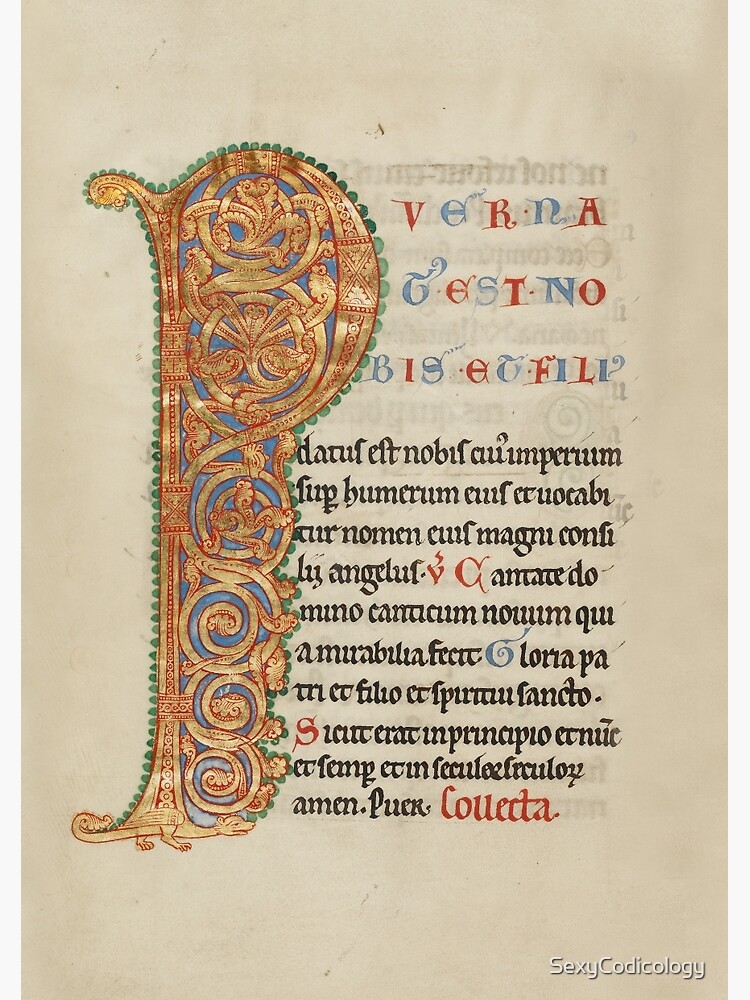 P VER·NA
T·EST·NO
BIS·ET·FILI⁹
datus est nobis cui᷒ imperium
sup̱ humerum eius et uocabi
tur nomen eius magni consi
lij angelus· ℣ Cantate do
mino canticum nouum qui
a mirabilia fecit Gloria pa
tri et filio et spiritui sancto·
Sicut erat in principio et nūc
et semp̱ et in secula seculoꝝ
amen. Puer· Collecta·
SexyCodicology